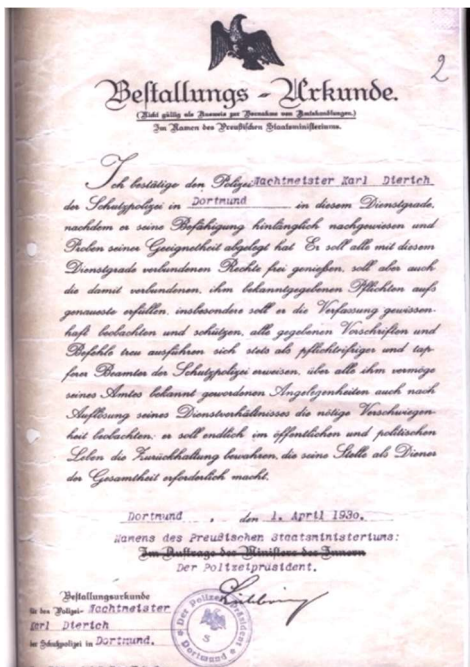 2
Bestallungs-Urkunde.
(Nicht gültig als Ausweis zur Vornahme von Amtshandlungen.)
Im Namen des Preußischen Staatsministeriums.
Ich bestätige den Polizei Wachtmeister Karl Dierich
der Schutzpolizei in Dortmund in diesem Dienstgrade,
nachdem er seine Befähigung hinlänglich nachgewiesen und
Proben seiner Geeignetheit abgelegt hat. Er soll alle mit diesem
Dienstgrade verbundenen Rechte frei genießen, soll aber auch
die damit verbundenen, ihm bekanntgegebenen Pflichten aufs
genaueste erfüllen, insbesondere soll er die Verfassung gewissen-
haft beobachten und schützen, alle gegebenen Vorschriften und
Befehle treu ausführen sich stets als pflichteifriger und tap-
ferer Beamter der Schutzpolizei erweisen, über alle ihm vermöge
seines Amtes bekannt gewordenen Angelegenheiten auch nach
Auflösung seines Dienstverhältnisses die nötige Verschwiegen-
heit beobachten, er soll endlich im öffentlichen und politischen
Leben die Zurückhaltung bewahren, die seine Stelle als Diener
der Gesamtheit erforderlich macht.
Dortmund, den 1. April 1930.
Namens des Preußischen Staatsministeriums:
Im Auftrage des Ministers des Innern
Der Polizeipräsident.
Bestallungsurkunde
für den Polizei- Wachtmeister
Karl Dierich
der Schutzpolizei in Dortmund.
Der Polizei-Präsident
Dortmund